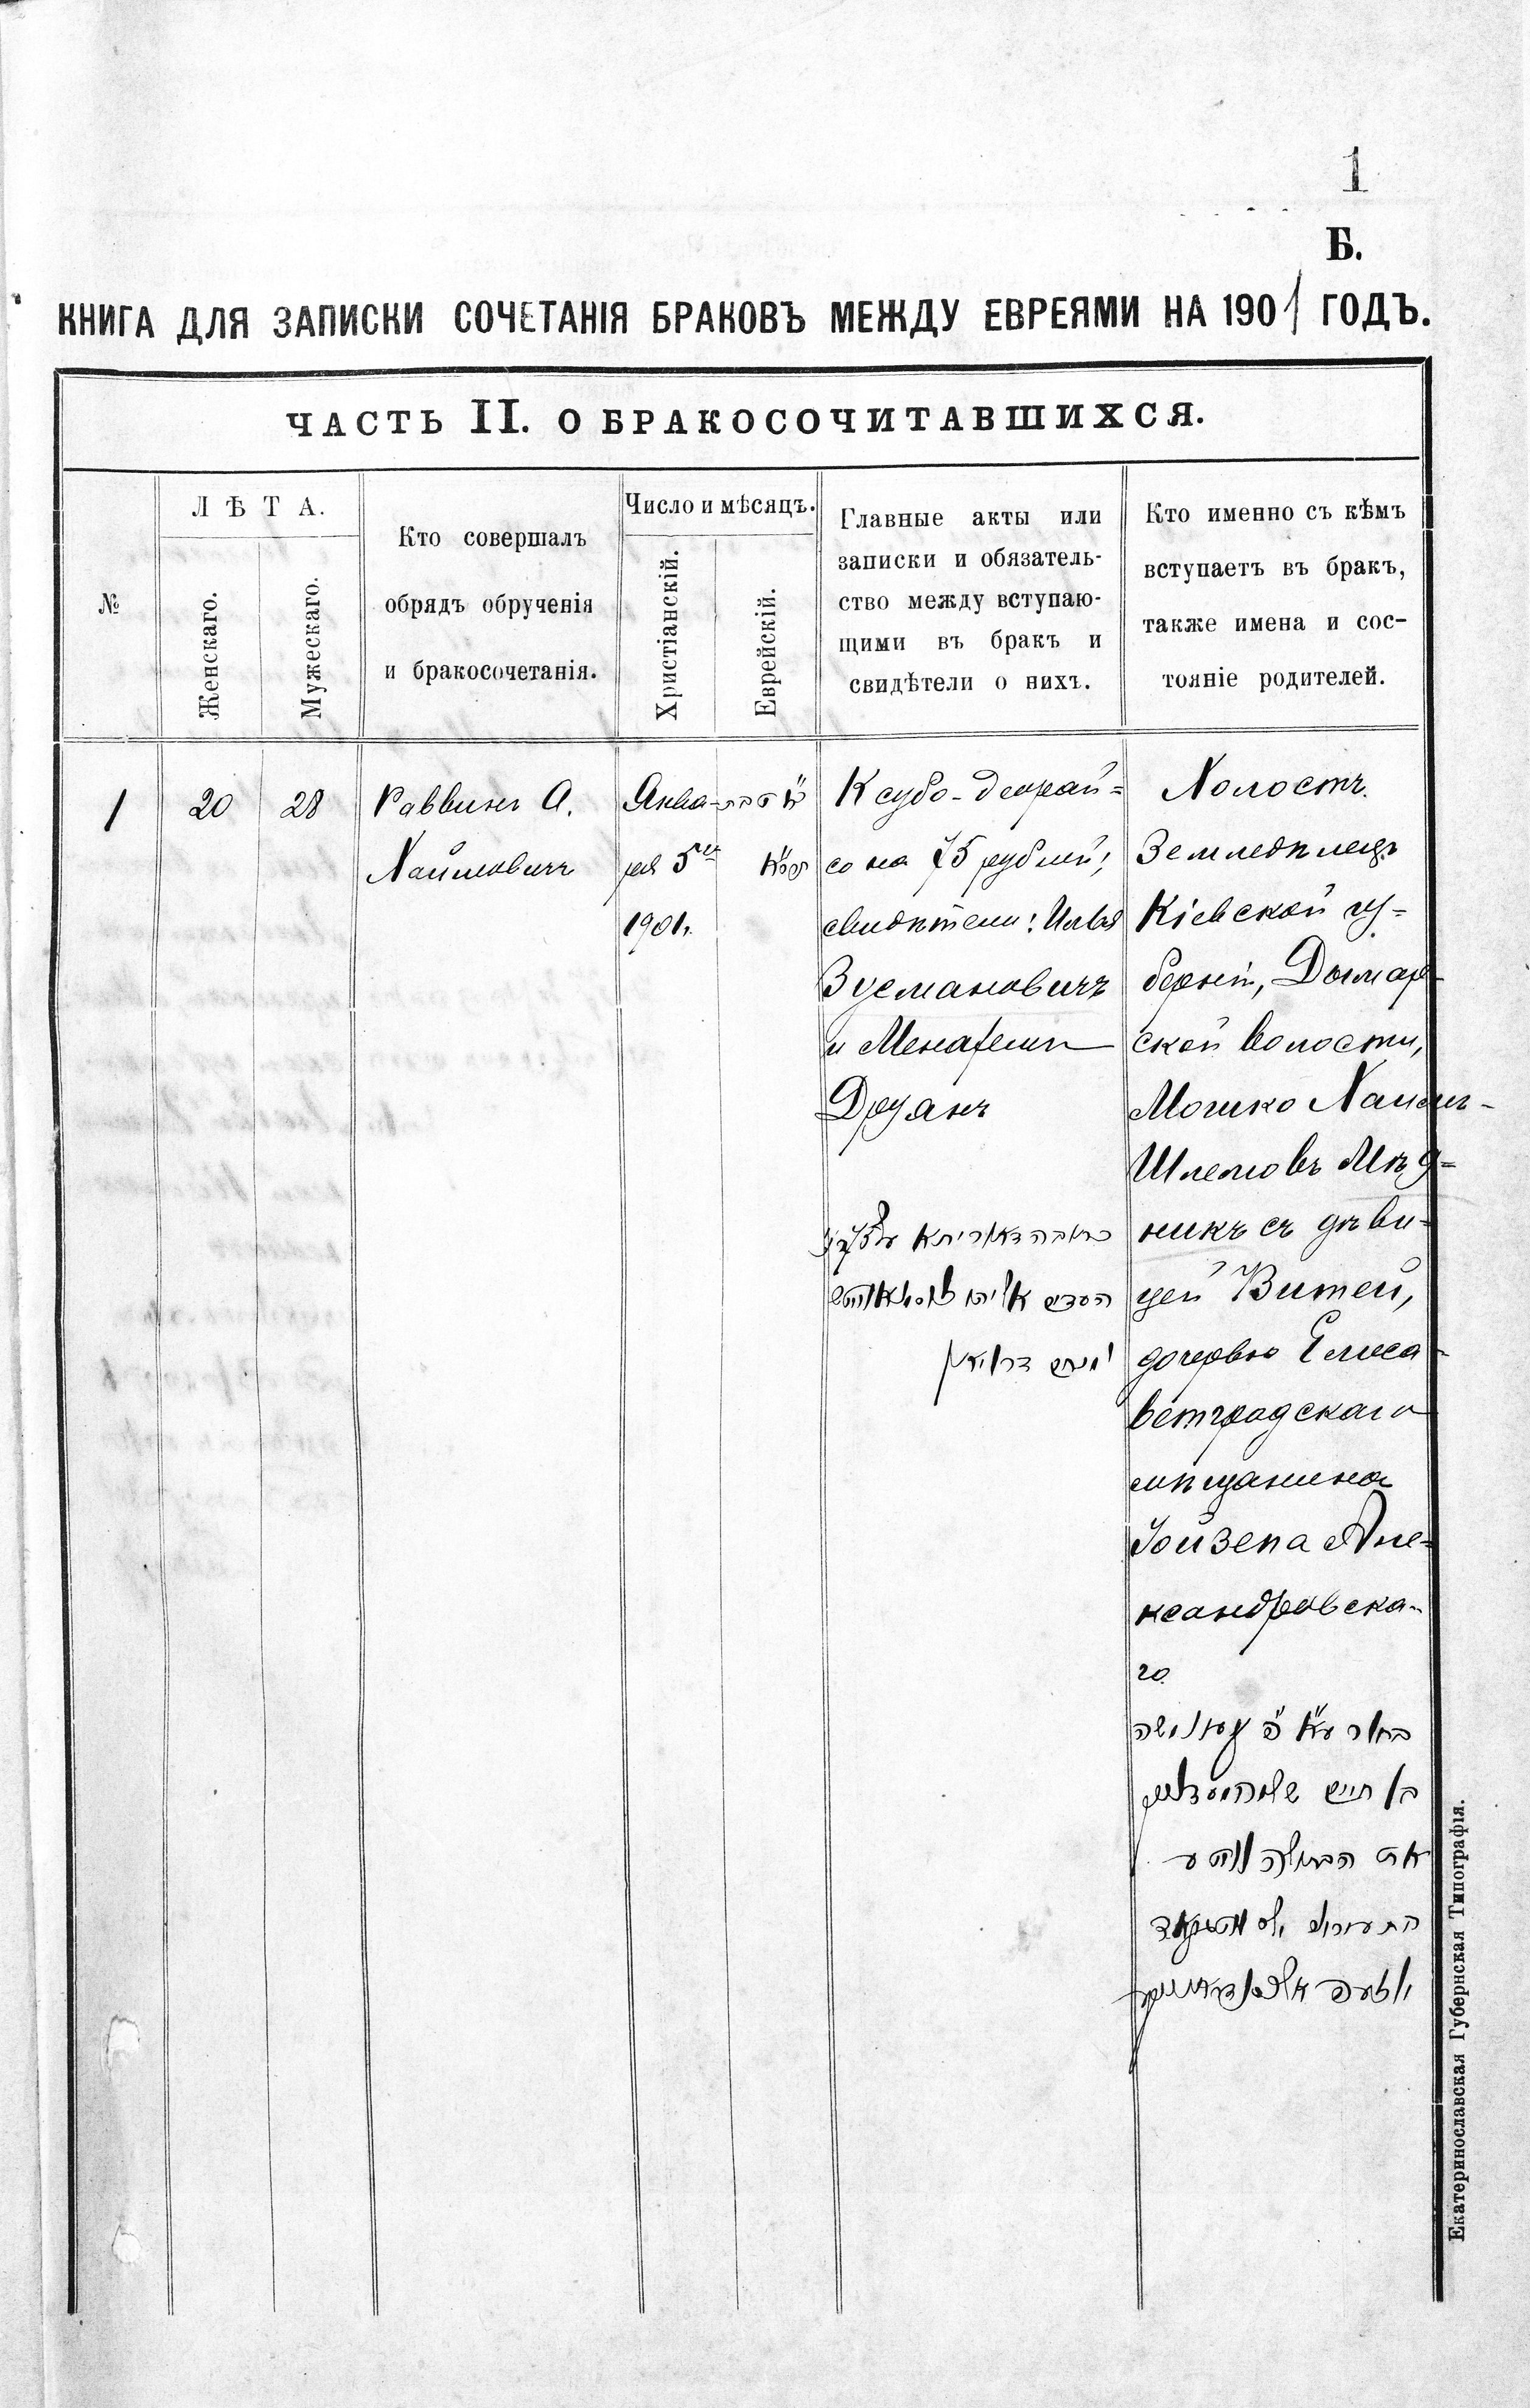 1
Б.
КНИГА ДЛЯ ЗАПИСКИ СОЧЕТАНІЯ БРАКОВЪ МЕЖДУ ЕВРЕЯМИ НА 1901 ГОДЪ.
ЧАСТЬ II. О БРАКОСОЧИТАВШИХСЯ.
№
ЛѢТА.
Женскаго.
Мужескаго.
Кто совершалъ
обрядъ обрученія
и бракосочетанія.
Число и мѣсяцъ.
Христіанскій.
Еврейскій.
Главные акты или
записки и обязатель-
ство между вступаю-
щими въ бракъ и
свидѣтели о нихъ.
Кто именно съ кѣмъ
вступаетъ въ бракъ,
также имена и сос-
тояніе родителей.
1
20
28
Раввинъ А.
Хаймовичъ
Янва-
ря 5го
1901.
Ксубо-деорай=
со на 75 рублей;
свидѣтели: Илья
Зусмановичъ
и
Друянъ
כתובה דאוריתא
העדים אליהו
דרויאן
Холостъ.
Земледѣлецъ
Кіевской гу=
берніи, Дымар-
ской волости,
Мошко Хаимъ-
Шлемовъ Мѣд=
никъ съ дѣви=
цей Витей,
дочерью Елиса-
ветградскаго
мѣщанина
Іойзепа Але-
ксандровска-
го.
בחור
בן חיים
את הבתולה
Екатеринославская Губернская Типографія.